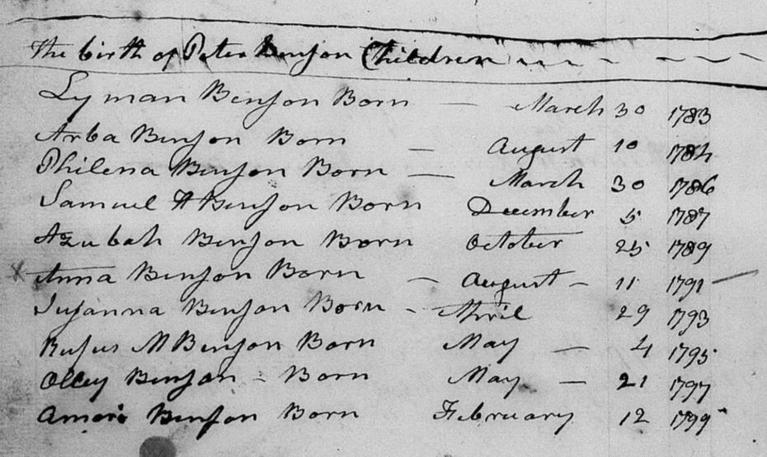 The birth of Peter Benson Children
Lyman Benson Born — March 30 1783
Arba Benson Born — August 10 1784
Philena Benson Born — March 30 1786
Samuel H Benson Born December 5 1787
Azubah Benson Born October 25 1789
x Anna Benson Born — August – 11 1791 —
Susanna Benson Born - April 29 1793
Rufus M Benson Born May — 4 1795
Olley Benson - Born May — 21 1797
Benson Born February 12 1799